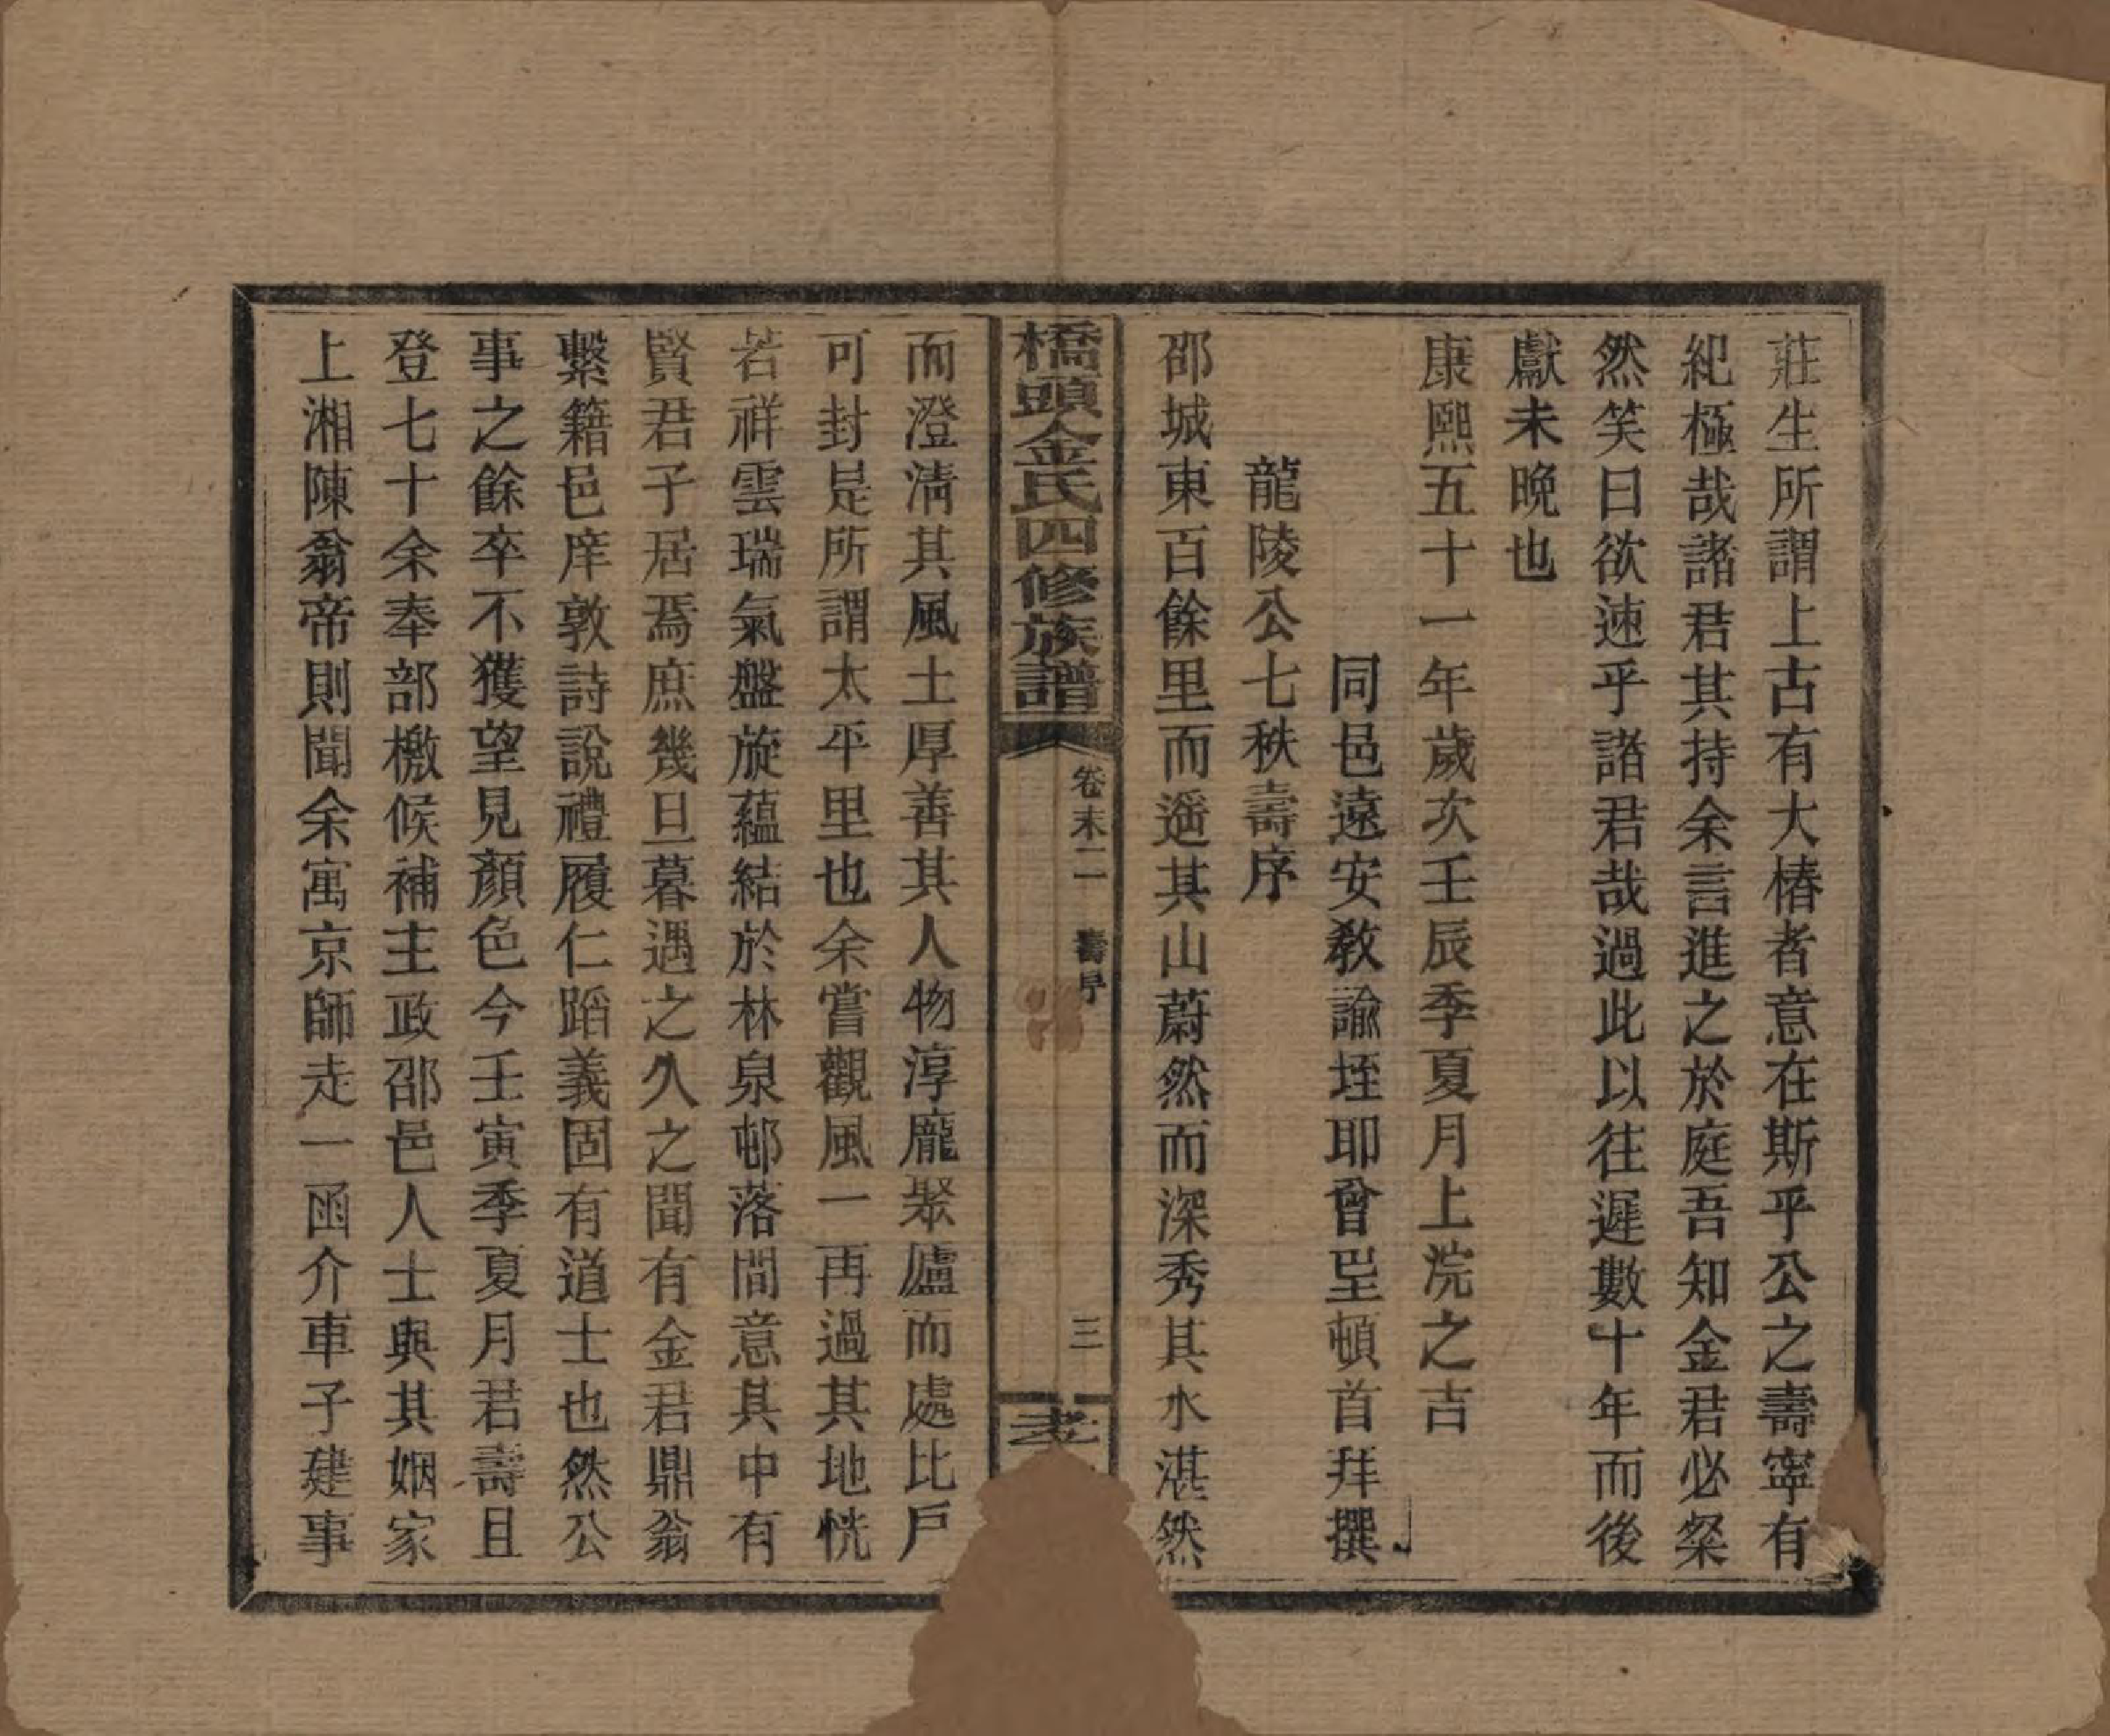 莊生所謂上古有大椿者意在斯乎公之壽寧有
紀極哉諸君其持余言進之於庭吾知金君必粲
然笑曰欲速乎諸君哉過此以往遲數十年而後
獻未晚也
康熙五十一年歲次壬辰季夏月上浣之吉
同邑遠安敎諭垤耶曾坒頓首拜撰
龍陵公七秩壽序
邵城東百餘里而遥其山蔚然而深秀其水湛然
橋頭金氏四修族譜
卷末二
壽序
三
而澄淸其風土厚善其人物淳龐聚廬而處比戶
可封是所謂太平里也余嘗觀風一再過其地恍
若祥雲瑞氣盤旋蘊結於林泉邨落間意其中有
賢君子居焉庶幾旦暮遇之久之聞有金君鼎翁
繫籍邑庠敦詩說禮履仁蹈義固有道士也然公
事之餘卒不獲望見顏色今壬寅季夏月君壽且
登七十余奉部檄候補主政邵邑人士與其姻家
上湘陳翁帝則聞余寓京師走一函介車子建事